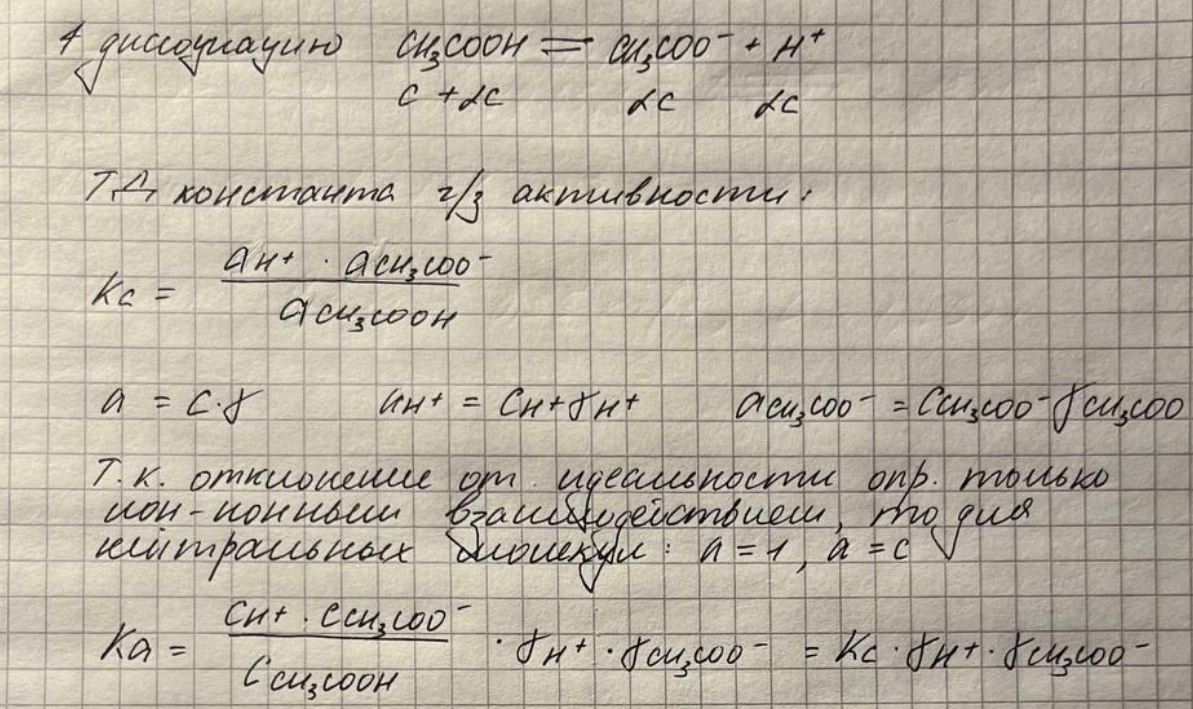 1 диссоциацию CH₃COOH ⇌ CH₃COO⁻ + H⁺
c + αc αc αc
ТД константа ч/з активности:
Kc = aH⁺ · aCH₃COO⁻ / aCH₃COOH
a = C·γ aH⁺ = CH⁺γH⁺ aCH₃COO⁻ = CCH₃COO⁻γCH₃COO
Т.к. отклонение от идеальности опр. только
ион-ионным взаимодействием, то для
нейтральных молекул: a = 1, a = c
Ka = CH⁺ · CCH₃COO⁻ / CCH₃COOH · γH⁺ · γCH₃COO⁻ = Kc · γH⁺ · γCH₃COO⁻